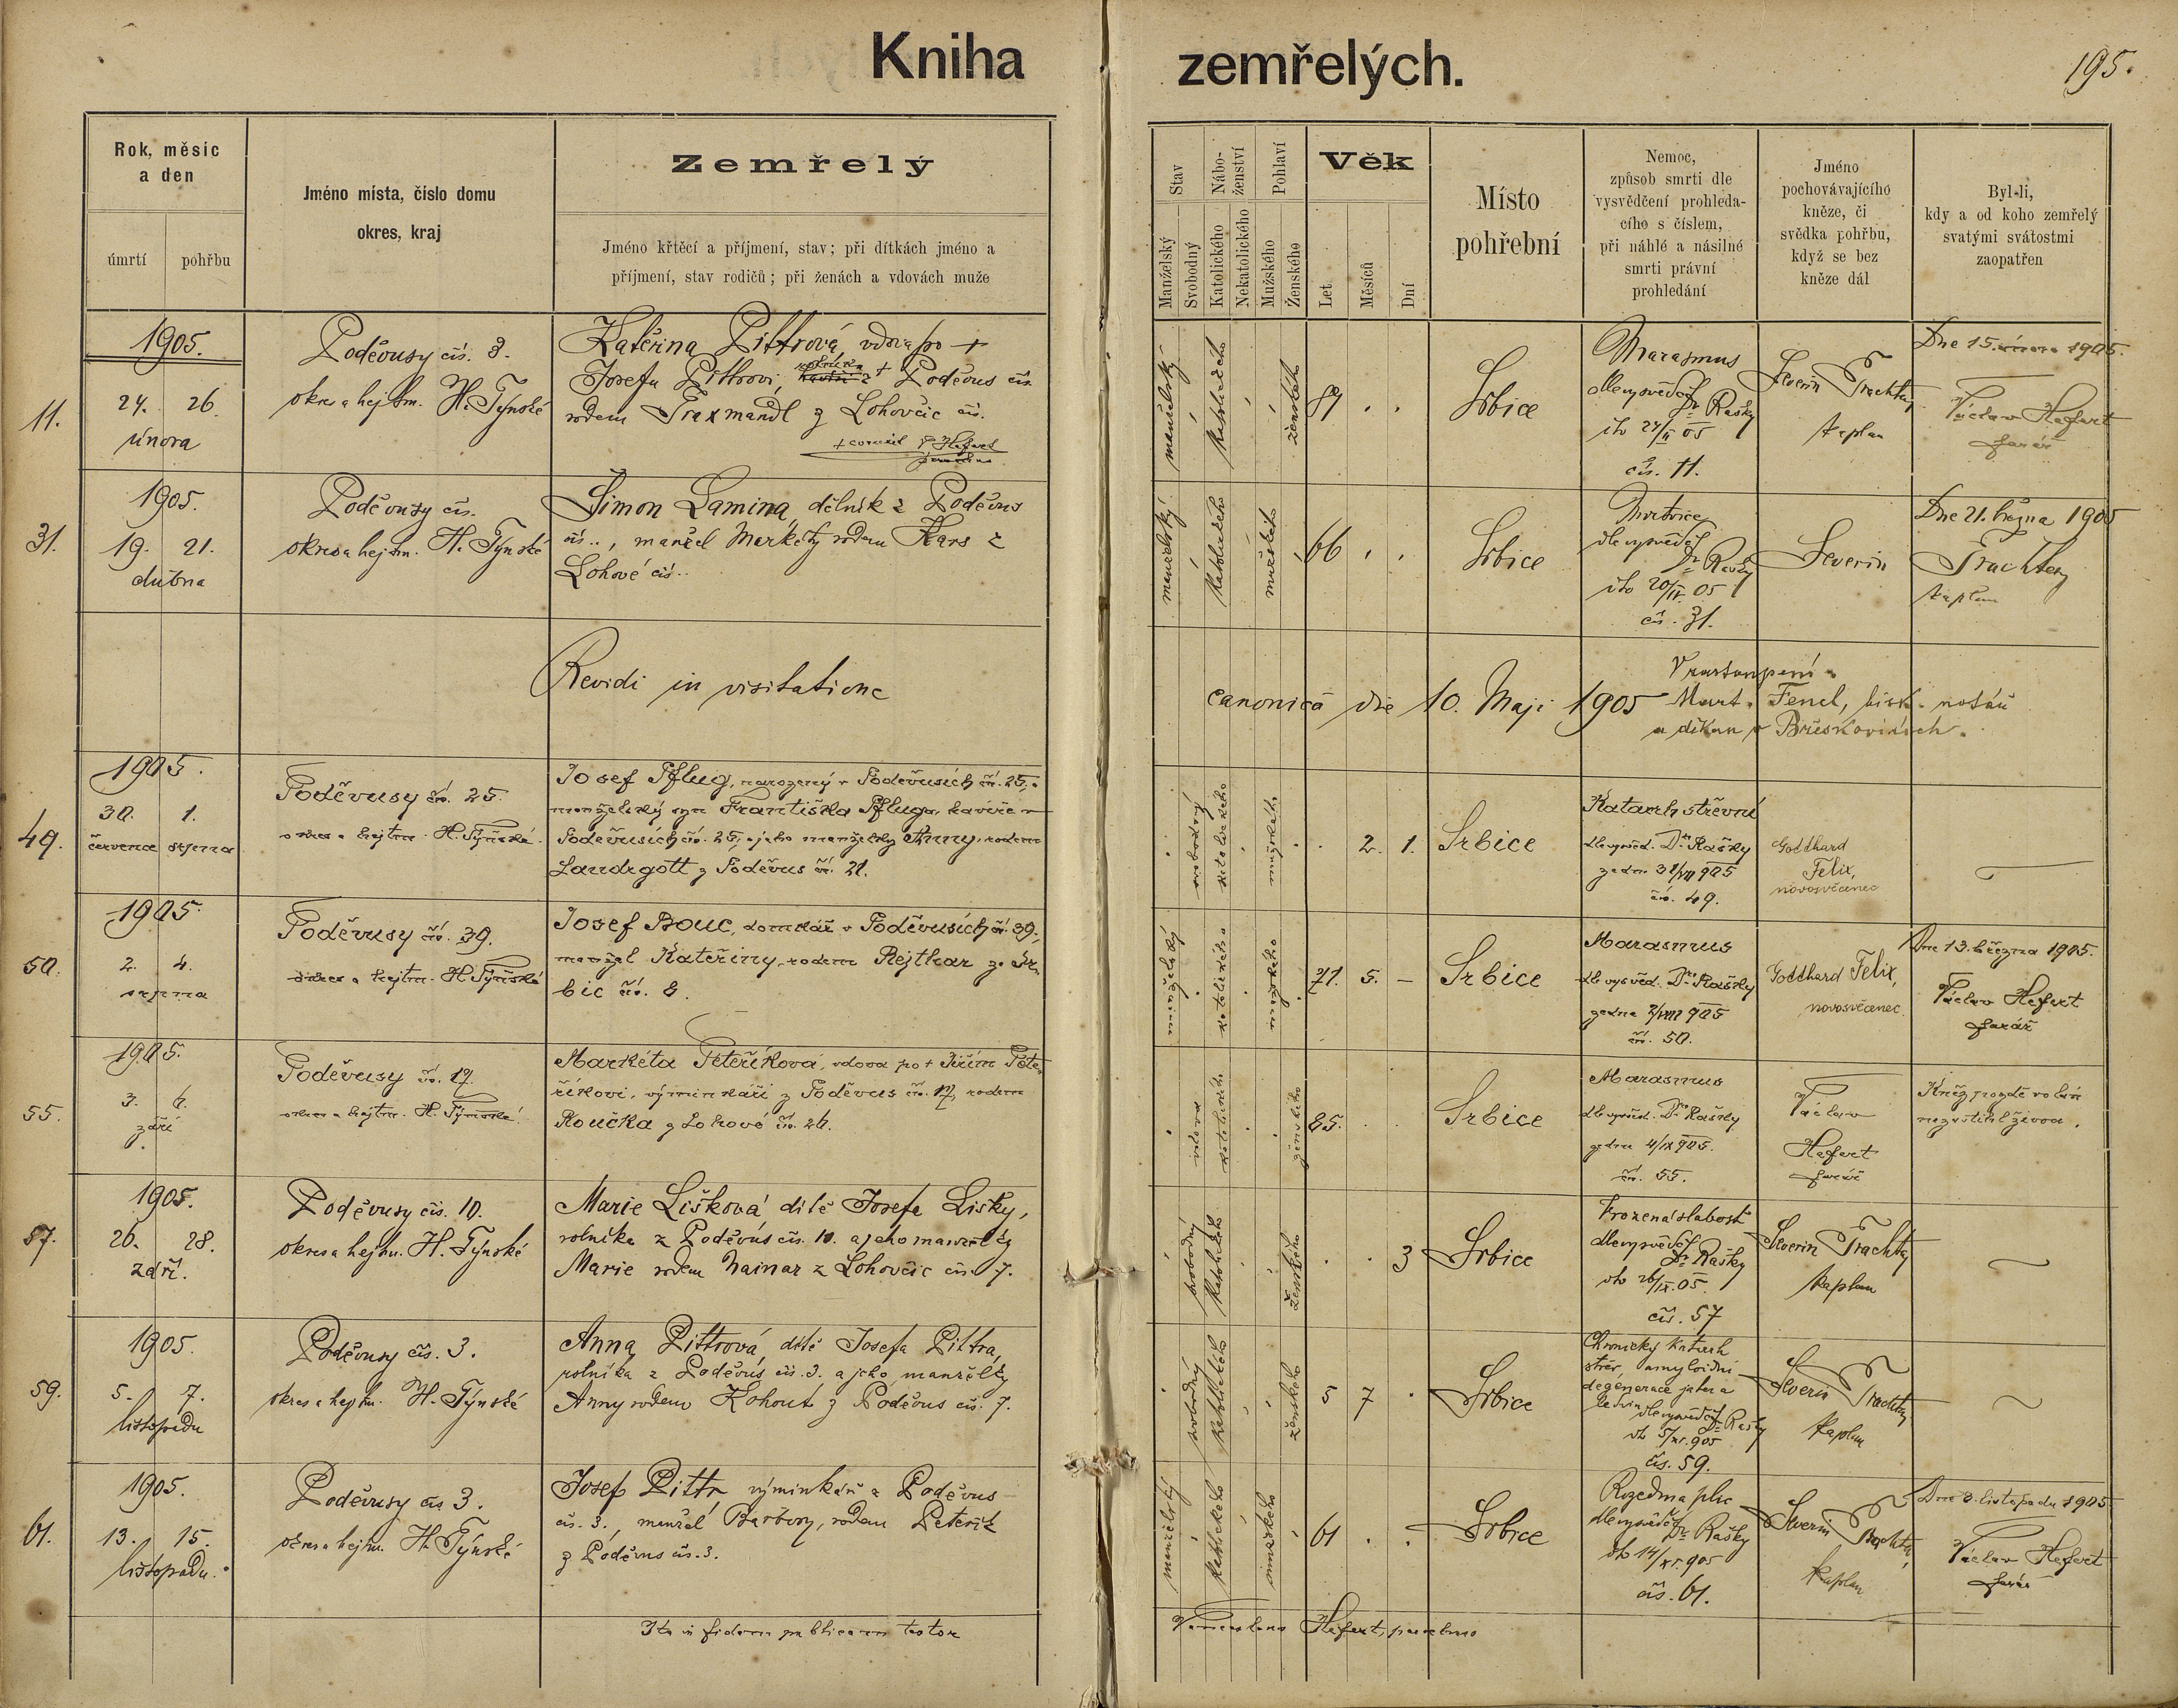 Kniha zemřelých.
195.
Rok, měsíc
a den
úmrtí
pohřbu
Jméno místa, číslo domu
okres, kraj
Zemřelý
Jméno křtěcí a příjmení, stav; při dítkách jméno a
příjmení, stav rodičů; při ženách a vdovách muže
Stav
Manželský
Svobodný
Nábo-
ženství
Katolického
Nekatolického
Pohlaví
Mužského
Ženského
Věk
Let
Měsíců
Dní
Místo
pohřební
Nemoc,
způsob smrti dle
vysvědčení prohleda-
cího s číslem,
při náhlé a násilné
smrti právní
prohledání
Jméno
pochovávajícího
kněze, či
svědka pohřbu,
když se bez
kněze dál
Byl-li,
kdy a od koho zemřelý
svatými svátostmi
zaopatřen
11.
1905.
24. 26.
února
Poděvusy čís. 3.
okres a hejtm. H. Týnské
Kateřina Pittrová, vdova po +
Josefu Pittrovi, z Poděvus čís.
rodem Traxmandl z Lohovčic čís.
manželský
katolického
ženského
89
Srbice
Marasmus
dle vysvěd. Dr Rašky
čís. 11.
Severin Trachta,
kaplan
Dne 15. února 1905.
Václav Hefert
farář
31.
1905.
19. 21.
dubna
Poděvusy čís.
okres a hejtm. H. Týnské
Šimon Lamina, dělník z Poděvus
čís.., manžel Markéty rodem Kars z
Lohové čís..
manželský
katolického
mužského
66
Srbice
Mrtvice
dle vysvěd.
Dr Rašky
20/IV. 05
čís. 31.
Severin Trachta,
kaplan
Dne 21. března 1905
Revidi in visitatione canonica die 10. Maji 1905
V zastoupení
Mart. Fencl, bisk. notář
a děkan v
49.
1905.
30. 1.
července srpna
Poděvusy čís. 25.
okres a hejtm. H. Týnské.
Josef Pflug, narozený v Poděvusích čís. 25,
manželský syn Františka Pfluga, kováře v
Poděvusích čís. 25, a jeho manželky Anny, rodem
Landrgott z Poděvus čís. 21.
svobodný
katolického
mužského
2. 1.
Srbice
Katarrh střevní
dle vysvěd. Dra Rašky
ze dne 31/VII 905
čís. 49.
Gotthard
Felix,
novosvěcenec
50.
1905.
2. 4.
srpna
Poděvusy čís. 39.
okres a hejtm. H. Týnské
Josef Bouc, domkář v Poděvusích čís. 39.,
manžel Kateřiny, rodem Rejthar ze Sr-
bic čís. 8.
manželský
katolického
mužského
71. 5. –
Srbice
Marasmus
dle vysvěd. Dra Rašky
ze dne 2/VIII 905
čís. 50.
Gotthard Felix,
novosvěcenec
Dne 13. března 1905.
Václav Hefert
farář
55.
1905.
3. 6.
září
Poděvusy čís. 17.
okres a hejtm. H. Týnské.
Markéta Peteříková, vdova po + Jiřím Pete-
říkovi, výminkáři z Poděvus čís. 17, rodem
Roučka z Lohové čís. 26.
vdova
katolického
ženského
85.
Srbice
Marasmus
dle vysvěd. Dra Rašky
ze dne 4/IX 905.
čís. 55.
Václav
Hefert
farář
Kněz pozdě volán
nezastihl živou.
57.
1905.
26. 28.
září.
Poděvusy čís. 10.
okres a hejtm. H. Týnské
Marie Lišková dítě Josefa Lišky,
rolníka z Poděvus čís. 10. a jeho manželky
Marie rodem Nainar z Lohovčic čís. 7.
svobodný
katolického
ženského
3
Srbice
Vrozená slabost
dle vysvěd.
Dr Rašky
26/IX. 05.
čís. 57
Severin Trachta,
kaplan
59.
1905.
5. 7.
listopadu
Poděvusy čís. 3.
okres a hejtm. H. Týnské
Anna Pittrová, dítě Josefa Pittra,
rolníka z Poděvus čís. 3. a jeho manželky
Anny rodem Kohout z Poděvus čís. 7.
svobodný
katolického
ženského
5 7
Srbice
Chronický katarh
střev, amyloidní
degenerace jater a
ledvin
dle vysvěd. Dr Rašky
5/XI. 905
čís. 59.
Severin Trachta,
kaplan
61.
1905.
13. 15.
listopadu.
Poděvusy čís 3.
okres a hejtm. H. Týnské
Josef Pittr výminkář z Poděvus
čís. 3., manžel Barbory, rodem Peteřík
z Poděvus čís. 3.
manželský
katolického
mužského
61
Srbice
Rozedma plic
dle vysvěd. Dr Rašky
14/XI. 905
čís. 61.
Severin Trachta,
kaplan
Dne 8. listopadu 1905
Václav Hefert
farář
Ita in fidem publicam testor
Venceslaus Hefert, parochus